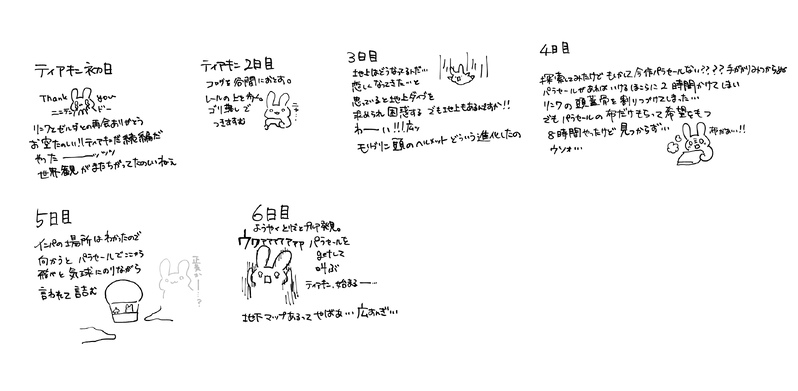 ティアキン初日
Thank you
ニンテンドー
リンクとゼルダとの再会ありがとう
お空たのしい!!ティアキンだ続編だ
やったーーーッッッ
世界観がまたちがってたのしいねぇ
ティアキン2日目
コログを谷間におとす。
レールの上を歩く。
ゴリ無しで
つきすすむ
3日目
地上はどうなってるんだ…
恋しくなってきた…と
思っていると地上ダイブを
求められ困惑する でも地上もあるんですか!!
わーい!!!広ッ
モルドリン頭のヘルメットどういう進化したの
4日目
探索してみたけど もしかして今作パラセールない????手がかりみつからぬ
パラセールがあればいけるほこらに2時間かけてはい
リンクの頭蓋骨を割りつづけてしまった…
でもパラセールの布だけもらって希望をもつ
8時間やったけど見つからず…
ウソォ…
布がぁ…!!
5日目
インパの場所はわかったので
向かうと パラセールでここから
降りろと気球にのりながら
言われて詰む
正気かー!?
6日目
ようやく プルア発見。
ウワァァァァァァ パラセールを
叫ぶ
ティアキン、始まるー…
地下マップあるってやばぁ… 広すぎ…